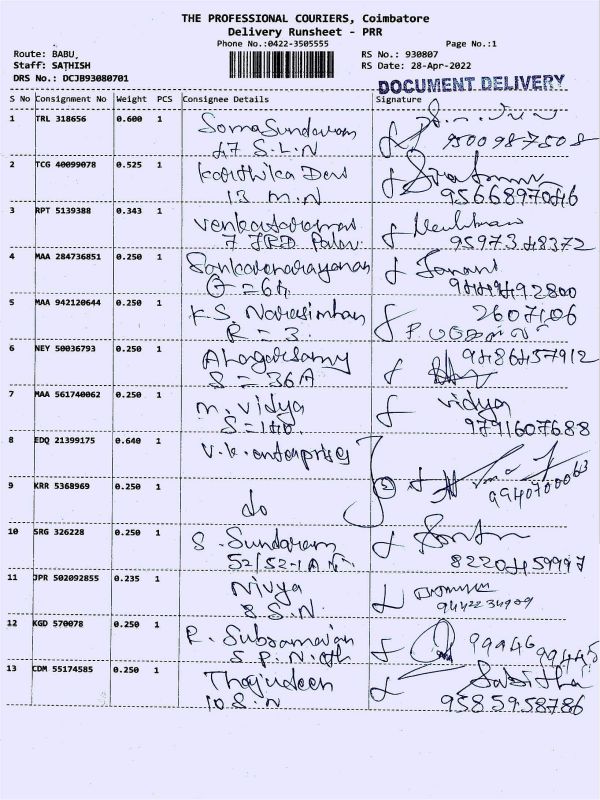 THE PROFESSIONAL COURIERS, Coimbatore
Delivery Runsheet - PRR
Phone No.:0422-3505555 Page No.:1
Route: BABU, RS No.: 930807
Staff: SATHISH RS Date: 28-Apr-2022
DRS No.: DCJB93080701
DOCUMENT DELIVERY
S No Consignment No Weight PCS Consignee Details Signature
1 TRL 318656 0.600 1 Soma Sundaram
47 S.L.N 9500987508
2 TCG 40099078 0.525 1 Karthika Devi
13 M.N 9566897046
3 RPT 5139388 0.343 1 Venkataraman
7 9597348372
4 MAA 284736851 0.250 1 Sankaranarayanan
G = 64 9444492800
5 MAA 942120644 0.250 1 K.S. Narasimhan 2607106
R = 3
6 NEY 50036793 0.250 1 Alagarsamy 9486457912
S = 36A
7 MAA 561740062 0.250 1 M. Vidya Vidya
S = 140 9791607688
8 EDQ 21399175 0.640 1 V.K. enterprises
9 KRR 5368969 0.250 1 do 2 9940700063
10 SRG 326228 0.250 1 S. Sundaram
52/52-1 A 8220459997
11 JPR 502092855 0.235 1 Nivya
8 S.N 9442234909
12 KGD 570078 0.250 1 R. Subramanian 99446 99445
S.P. Nith
13 CDM 55174585 0.250 1 Thajudeen Sabitha
10 S.N 9585958786